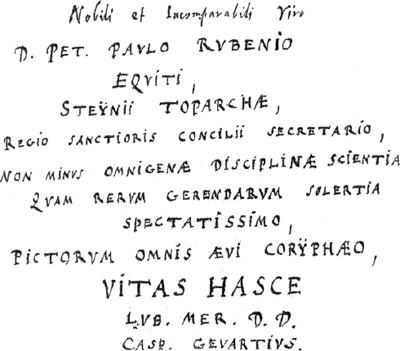 Nobili et Incomparabili Viro
D. PET. PAVLO RVBENIO
EQVITI,
STEŸNII TOPARCHÆ,
REGIO SANCTIORIS CONCILII SECRETARIO,
NON MINVS OMNIGENÆ DISCIPLINÆ SCIENTIA
QVAM RERVM GERENDARVM SOLERTIA
SPECTATISSIMO,
PICTORVM OMNIS ÆVI CORŸPHÆO,
VITAS HASCE
LVB. MER. D. D.
CASP. GEVARTIVS.